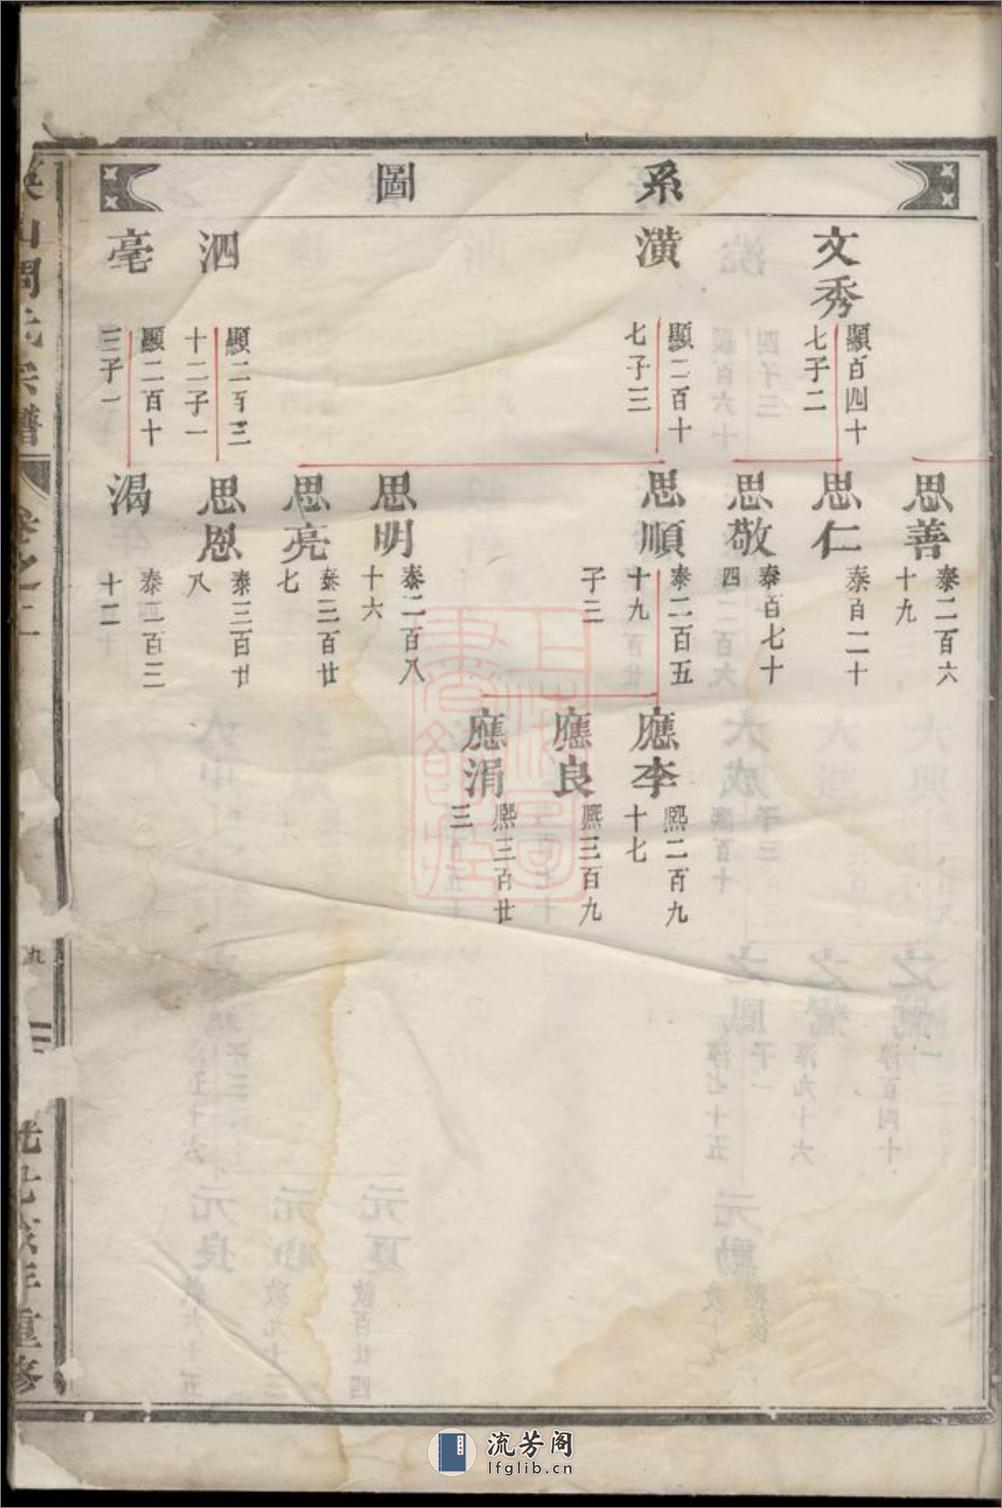 系圖
文秀
顯百四十
七子二
潢
顯二百十
七子三
泗
顯二百三
十二子一
亳
顯二百十
三子一
思善
泰二百六
十九
思仁
泰百二十
思敬
泰百七十
四
思順
泰二百五
十九
子三
思明
泰二百八
十六
思亮
泰三百廿
七
思恩
泰三百廿
八
渴
泰四百三
十二
應李
熙二百九
十七
應良
熙三百九
應涓
熙三百廿
三
山周氏宗譜
卷之二
九
年重修
流芳阁
lfglib.cn